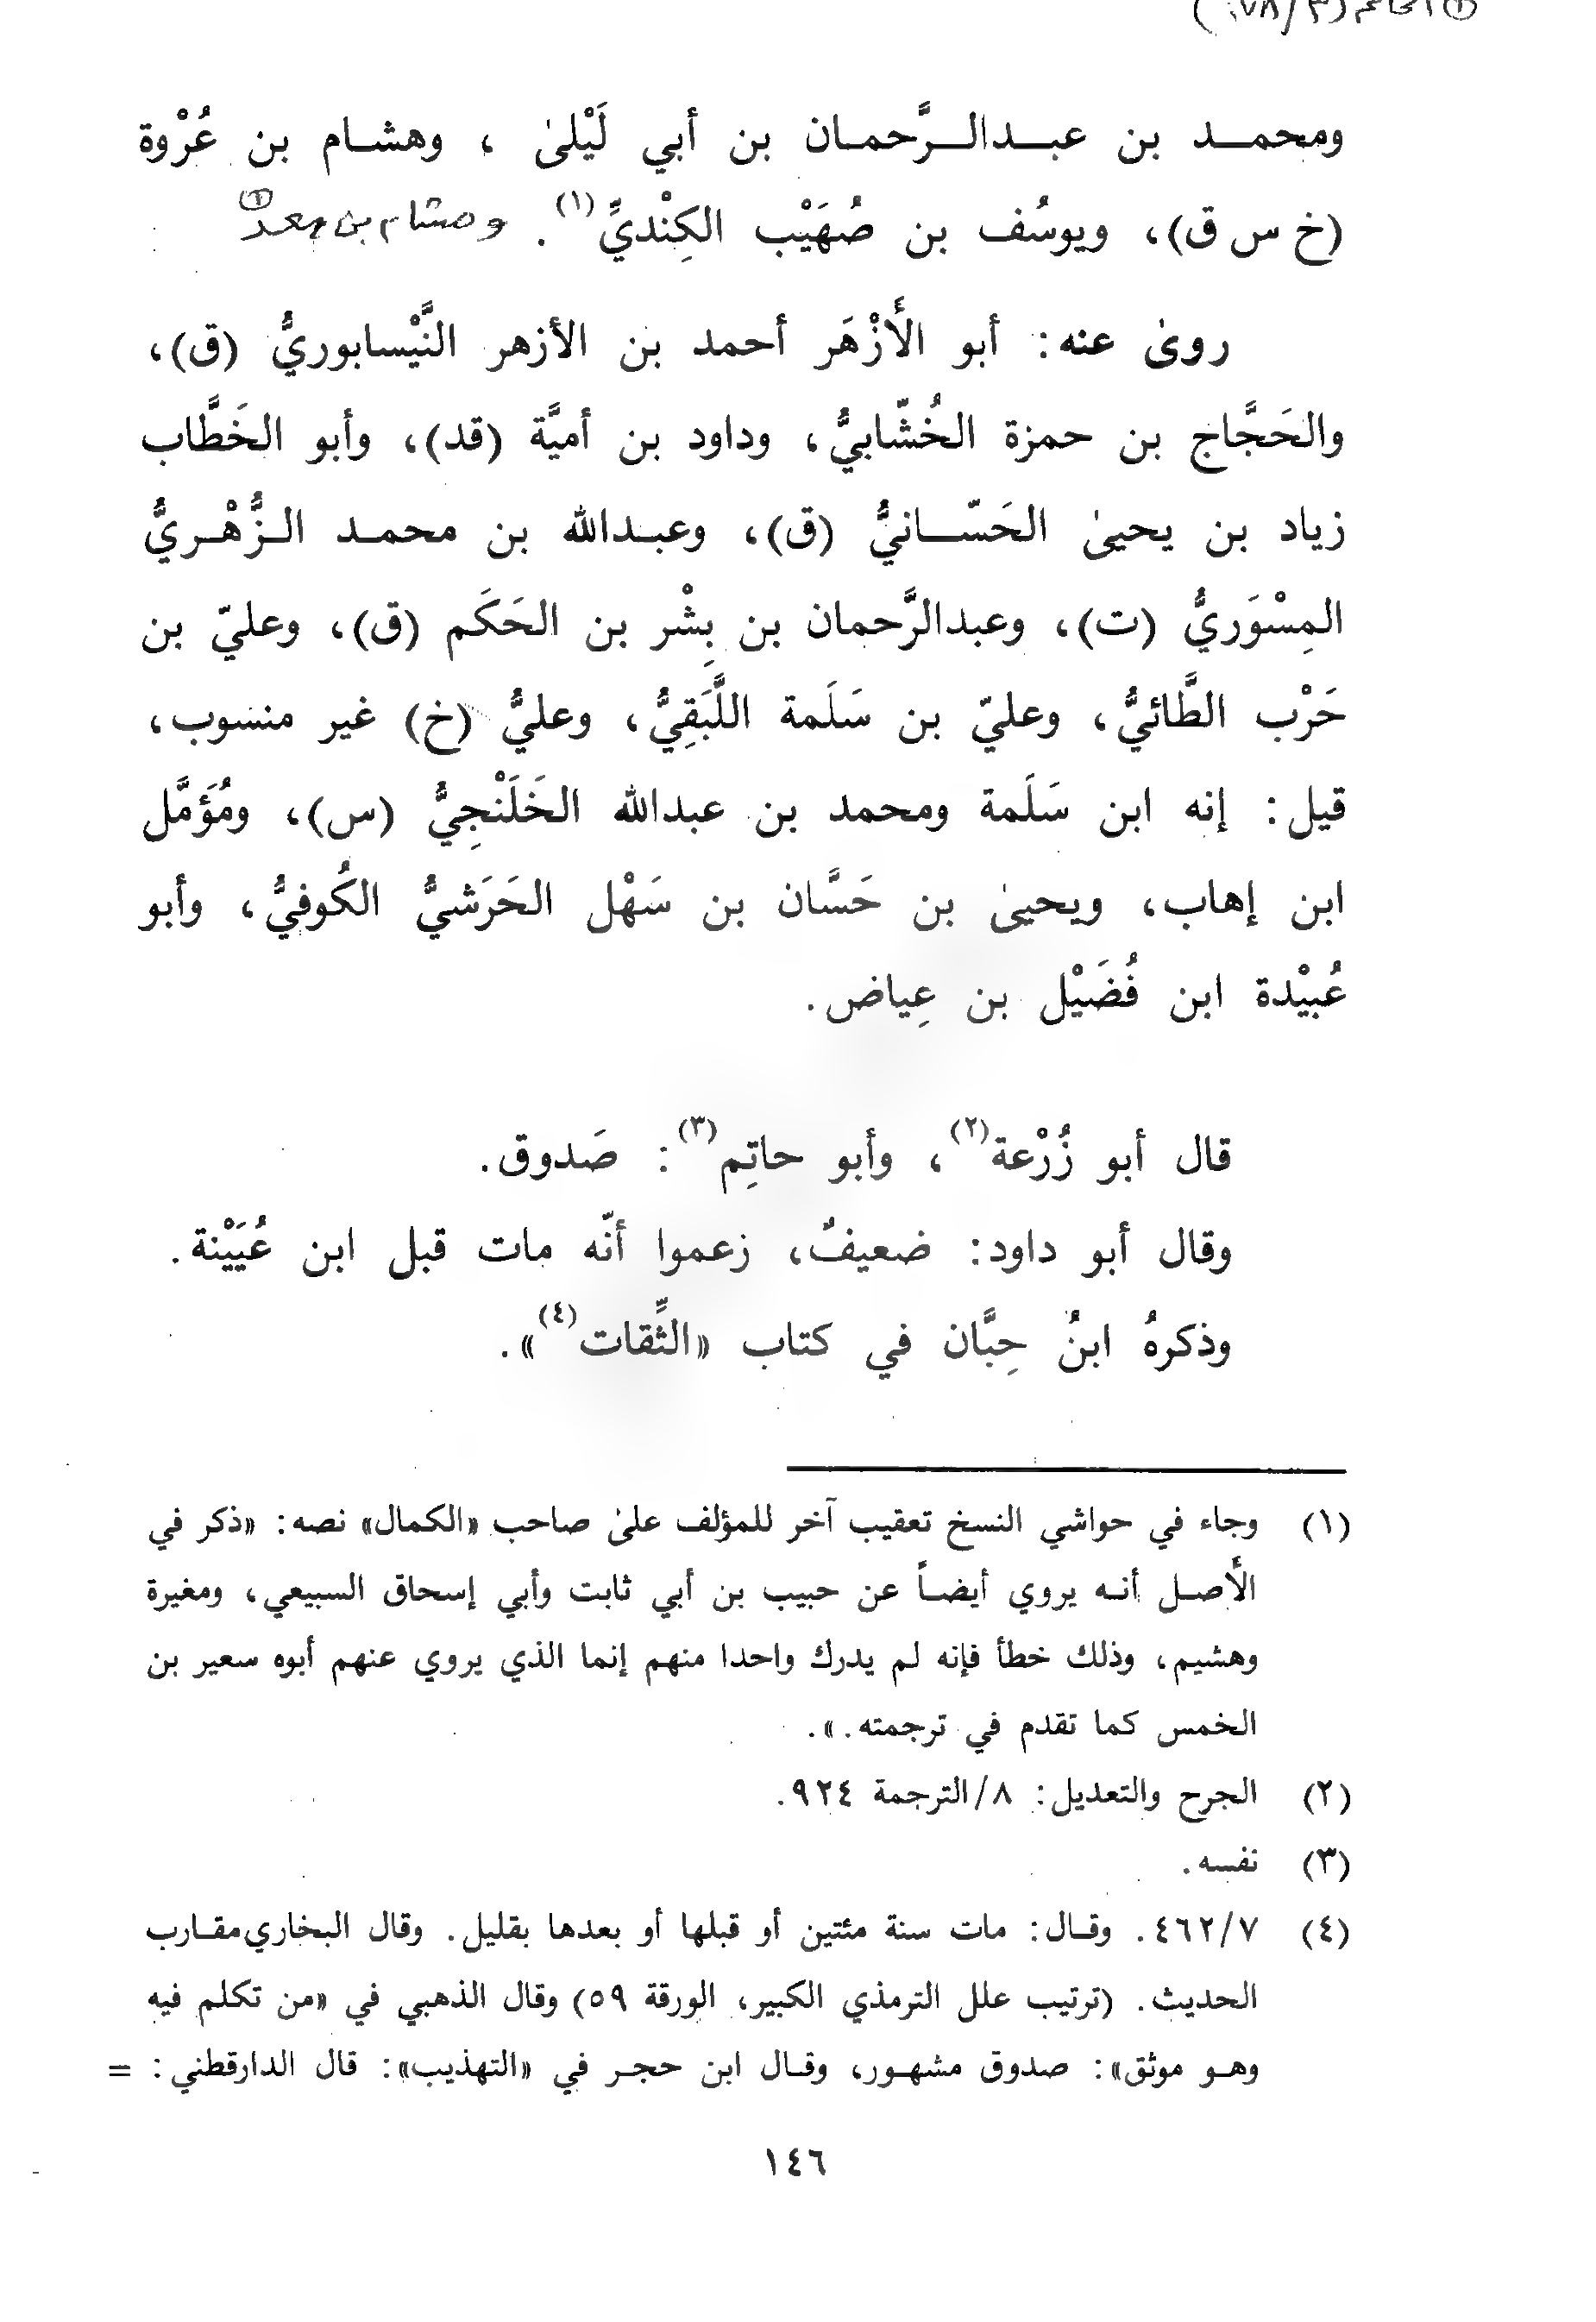 ومحمـــد بن عبـــدالـــرَّحمـان بن أبي لَيْلىٰ ، وهشـام بن عُرْوة
(خ س ق)، ويوسُف بن صُهَيْب الكِنْديِّ(١). وهشام بن سعد ①
روىٰ عنه: أبو الأَزْهَر أحمد بن الأزهر النَّيْسابوريُّ (ق)،
والحَجَّاج بن حمزة الخُشّابيُّ، وداود بن أميَّة (قد)، وأبو الخَطَّاب
زياد بن يحيىٰ الحَسّـــانيُّ (ق)، وعبـدالله بن محمـد الـزُّهْـريُّ
المِسْوَريُّ (ت)، وعبدالرَّحمان بن بِشْر بن الحَكَم (ق)، وعليّ بن
حَرْب الطَّائيُّ، وعليّ بن سَلَمة اللَّبَقِيُّ، وعليُّ (خ) غير منسوب،
قيل: إنه ابن سَلَمة ومحمد بن عبدالله الخَلَنْجِيُّ (س)، ومُؤَمَّل
ابن إهاب، ويحيىٰ بن حَسَّان بن سَهْل الحَرَشيُّ الكُوفيُّ، وأبو
عُبيْدة ابن فُضَيْل بن عِياض.
قال أبو زُرْعة(٢)، وأبو حاتِم(٣): صَدوق.
وقال أبو داود: ضعيفٌ، زعموا أنّه مات قبل ابن عُيَيْنة.
وذكرهُ ابنُ حِبَّان في كتاب «الثِّقات(٤)».
(١) وجاء في حواشي النسخ تعقيب آخر للمؤلف علىٰ صاحب «الكمال» نصه: «ذكر في
الأَصـل أنـه يروي أيضـاً عن حبيب بن أبي ثابت وأبي إسحاق السبيعي، ومغيرة
وهشيم، وذلك خطأ فإنه لم يدرك واحدا منهم إنما الذي يروي عنهم أبوه سعير بن
الخمس كما تقدم في ترجمته.».
(٢) الجرح والتعديل: ٨/الترجمة ٩٢٤.
(٣) نفسه.
(٤) ٤٦٢/٧. وقـال: مات سنة مئتين أو قبلها أو بعدها بقليل. وقال البخاري مقـارب
الحديث. (ترتيب علل الترمذي الكبير، الورقة ٥٩) وقال الذهبي في «من تكلم فيه
وهـو موثق»: صدوق مشهـور، وقـال ابن حجـر في «التهذيب»: قال الدارقطني: =
١٤٦